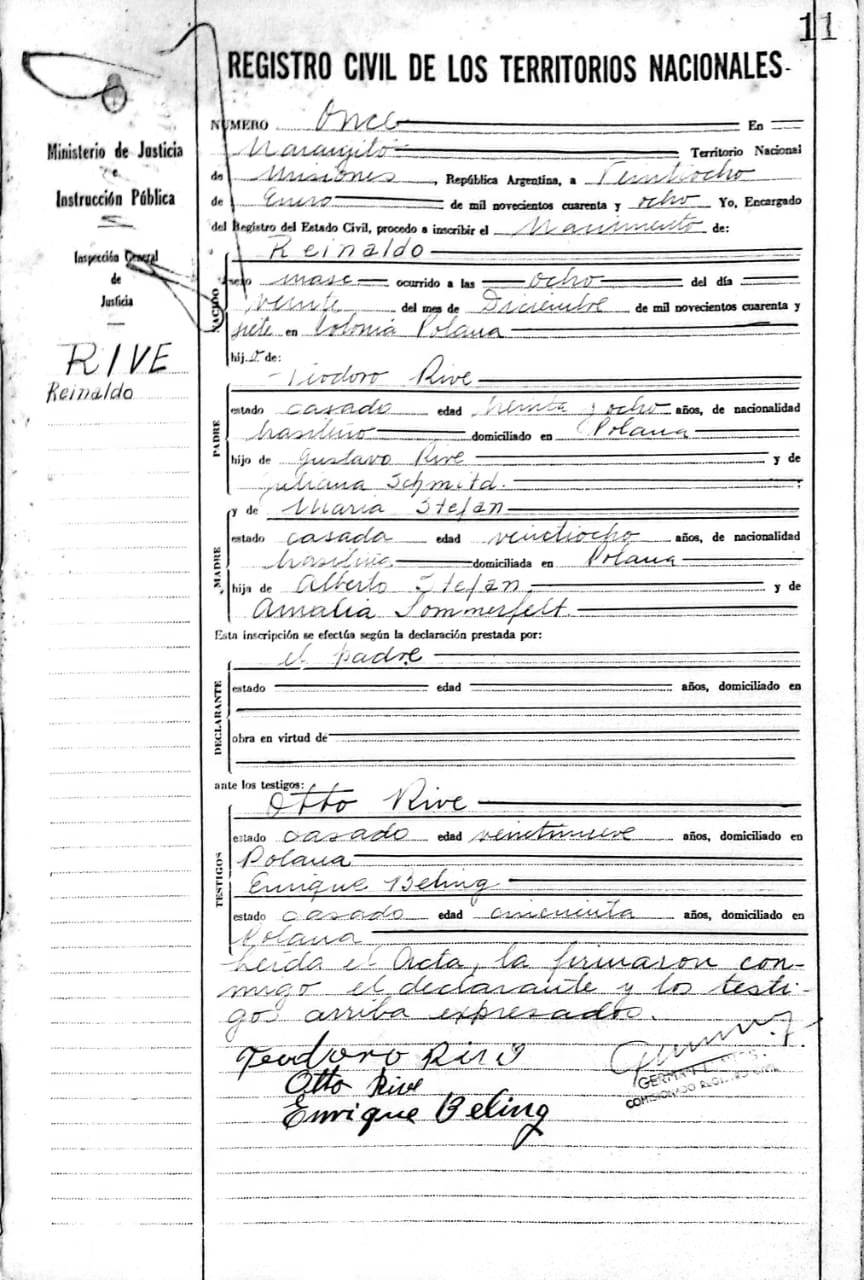 11
REGISTRO CIVIL DE LOS TERRITORIOS NACIONALES-
Ministerio de Justicia
e
Instrucción Pública
Inspección General
de
Justicia
RIVE
Reinaldo
NUMERO Once En
Naranjito Territorio Nacional
de Misiones, República Argentina, a Veintiocho
de Enero de mil novecientos cuarenta y ocho Yo, Encargado
del Registro del Estado Civil, procedo a inscribir el Nacimiento de:
NACIDO
Reinaldo
sexo masc ocurrido a las ocho del día
veinte del mes de Diciembre de mil novecientos cuarenta y
siete en Colonia Polana
hijo de:
PADRE
Teodoro Rive
estado casado edad treinta y ocho años, de nacionalidad
brasileño domiciliado en Polana
hijo de Gustavo Rive y de
Juliana Schmitd.
MADRE
y de Maria Stefan
estado casada edad veintiocho años, de nacionalidad
brasileña domiciliada en Polana
hija de Alberto Stefan y de
Amalia Sommerfelt.
Esta inscripción se efectúa según la declaración prestada por:
DECLARANTE
el padre
estado edad años, domiciliado en
obra en virtud de
ante los testigos:
TESTIGOS
Otto Rive
estado casado edad veintinueve años, domiciliado en
Polana
Enrique Beling
estado casado edad cincuenta años, domiciliado en
Polana
Leida el Acta, la firmaron con-
migo el declarante y los testi-
gos arriba expresados.
Teodoro
Otto Rive
Enrique Beling